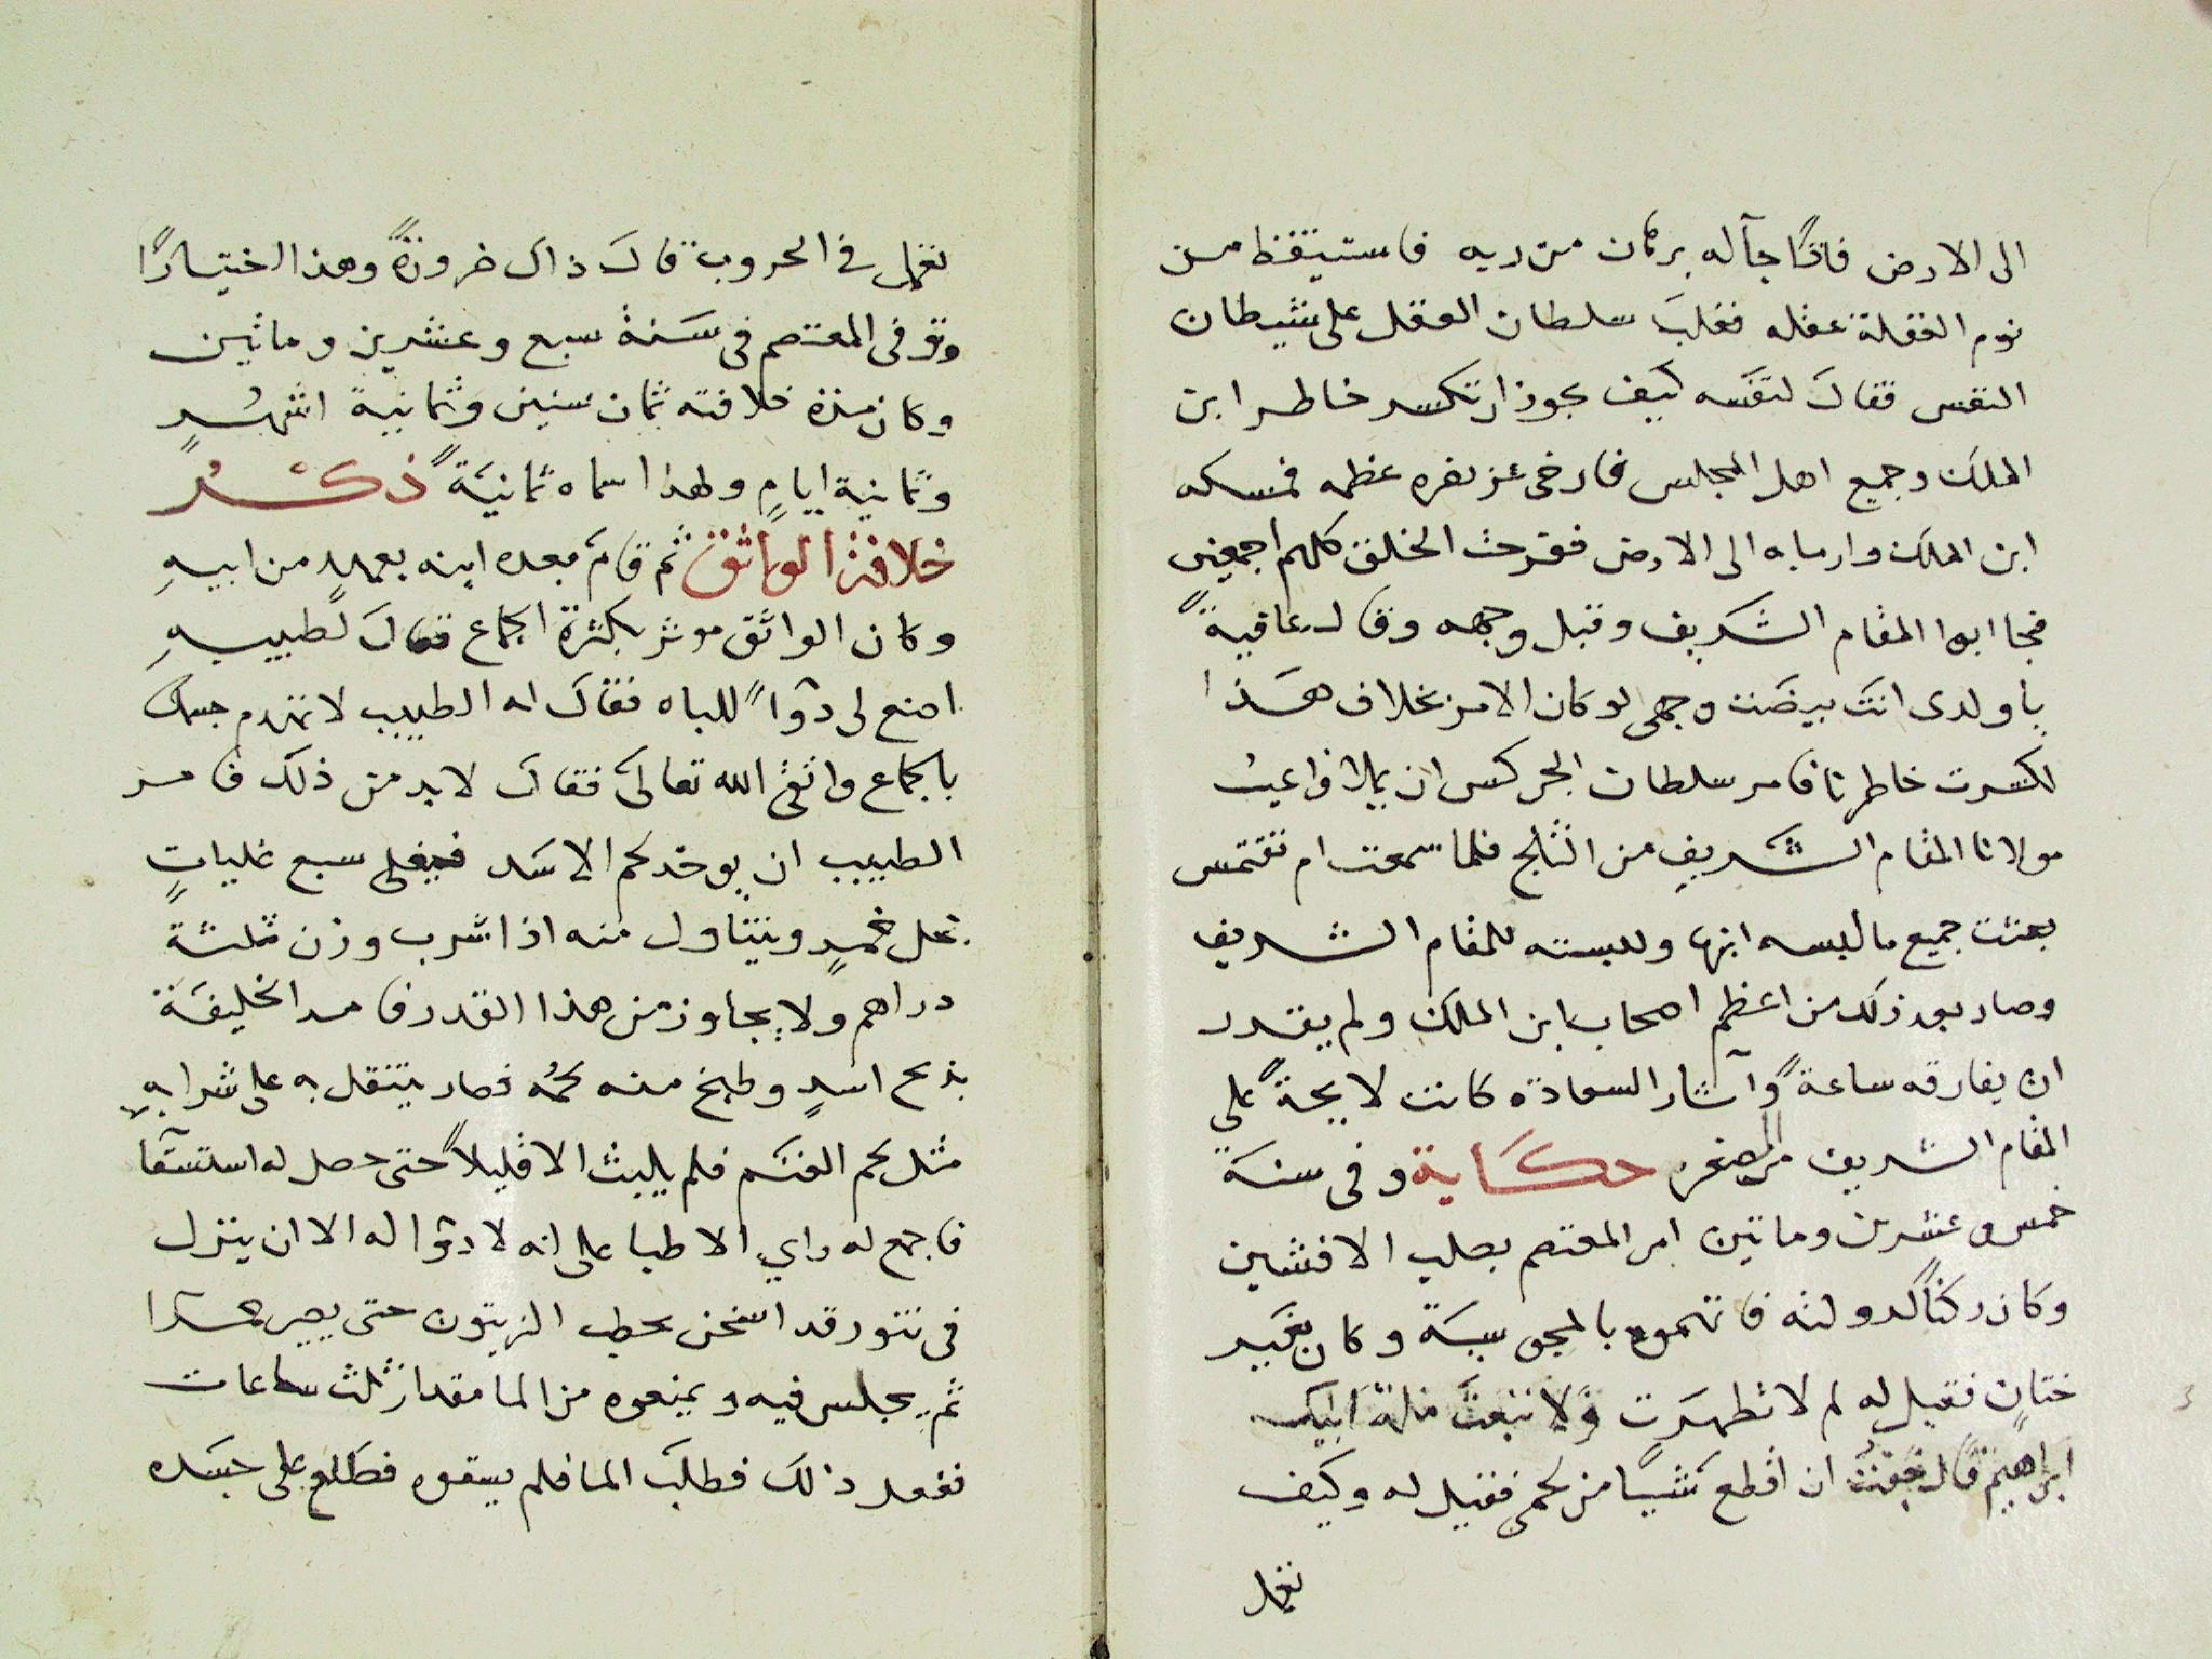 الى الارض فاتًا جآله برهان من ربه فاستيقظ من
نوم الغفلة عقله فغلبَ سلطان العقل على شيطان
النفس فقالَ لنفسه كيف يجوز ان تكسر خاطر ابن
الملك وجميع اهل المجلس فارخى عظمه فمسكه
ابن الملك وارماه الى الارض ففرحت الخلق كلهم اجمعين
فجا ابوا المقام الشريف وقبل وجهه وقال عافيةً
يا ولدى انتَ بيضَت وجهى لو كان الامر بخلاف هَذا
لكسرت خاطرنا فامر سلطان الجركس ان يملا فو اعبت
مولانا المقام الشريف من الثلج فلما سمعت ام تقتمس
بعثت جميع ما لبسه ابنها ولبسته للمقام الشريف
وصار بعد ذلك من اعظم اصحاب ابن الملك ولم يقدر
ان يفارقه ساعةً وآثار السعادة كانت لايحةً على
المقام الشريف من الصغر حكَاية وفى سنة
خمس وعشرين وماتين امر المعتصم بصلب الافشين
وكان ركنًا لدولته فاتهموه بالمجوسية وكان بغير
ختانٍ فقيل له لم لا تطهرَت ولا تبعتَ ملة ابيك
ابراهيم قال خفتُ ان اقطع شيًا من لحمى فقيل له وكيف
تعمل
تعمل فى الحروب قالَ ذاك ضرورةً وهذا اختيارًا
وتوفى المعتصم فى سَنة سبع وعشرين وماتين
وكان مدة خلافته ثمان سنين وثمانية اشهُرٍ
وثمانية ايامٍ ولهذا اسماه ثمانيَةً ذكْرُ
خلافة الواثق ثم قامَ بعده ابنه بعهدٍ من ابيهِ
وكان الواثق موثر بكثرة الجماع فقالَ لطبيبهِ
اصنع لى دوًا للباه فقالَ له الطبيب لا تهدم جسمك
بالجماع واتقِ الله تعالىَ فقالَ لابد من ذلك فامر
الطبيب ان يوخذ لحم الاسَد فيغلى سبع غلياتٍ
بخل خمرٍ ويتناول منه اذا شرب وزن ثلثة
دراهم ولا يجاوز من هذا القدر فامر الخليفَة
بذبح اسدٍ وطبخ منه لحمُه فصار يتنقل به على شرابهِ
مثل لحم الغنَم فلم يلبث الا قليلاً حتى حصل له استسقَا
فاجمع له راي الاطبا على انه لا دوًا له الا ان ينزل
فى تنور قد اسخن بحطب الزيتون حتى يصير جمرا
ثم يجلس فيه ويمنعوه من الما مقدار ثلث ساعات
ففعل ذلك فطلبَ الما فلم يسقوه فطلع على جسَده